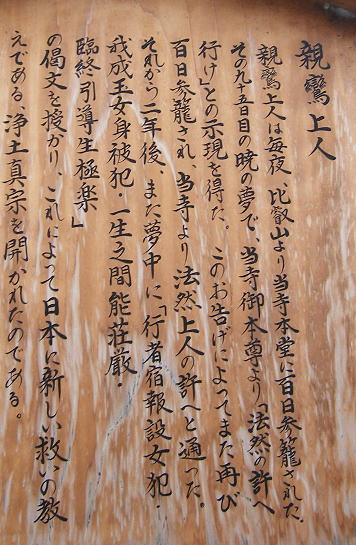 親鸞上人
親鸞上人は毎夜、比叡山より当寺本堂に百日参籠された.
その九十五日目の暁の夢で、当寺御本尊より「法然の許へ
行け」との示現を得た。このお告げによってまた再び
百日参籠され、当寺より法然上人の許へと通った。
それから二年後、また夢中に「行者宿報設女犯・
我成玉女身被犯・一生之間能荘厳・
臨終引導生極楽」
の偈文を授かり、これによって日本に新しい救いの教
えである、浄土真宗を開かれたのである。